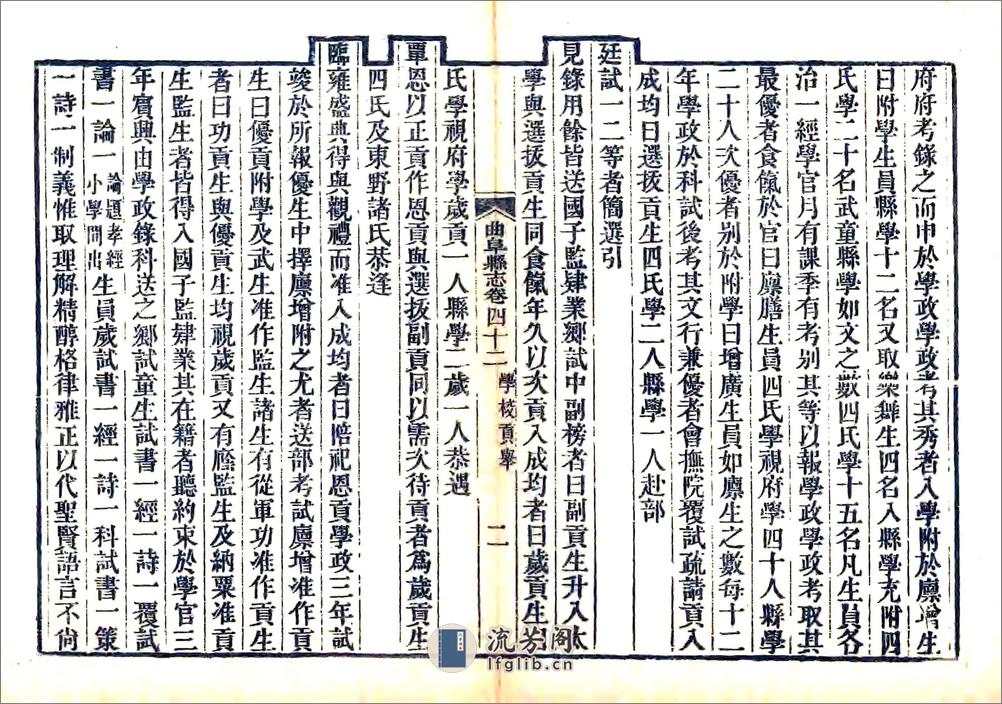 府府考錄之而申於學政學政考其秀者入學附於廩增生
曰附學生員縣學十二名又取樂舞生四名入縣學充附四
氏學二十名武童縣學如文之數四氏學十五名凡生員各
治一經學官月有課季有考別其等以報學政學政考取其
最優者食餼於官曰廩膳生員四氏學視府學四十人縣學
二十人次優者別於附學曰增廣生員如廪生之數每十二
年學政於科試後考其文行兼優者會撫院覆試疏請貢入
成均曰選拔貢生四氏學二人縣學一人赴部
廷試一二等者簡選引
見錄用餘皆送國子監肄業鄉試中副榜者曰副貢生升入太
學與選拔貢生同食餼年久以次貢入成均者曰歲貢生四
曲阜縣志卷四十二 學校貢舉 二
氏學視府學歲貢一人縣學二歲一人恭遇
覃恩以正貢作恩貢與選拔副貢同以需次待貢者爲歲貢生
四氏及東野諸氏恭逢
臨雍盛典得與觀禮而准入成均者曰陪祀恩貢學政三年試
竣於所報優生中擇廪增附之尤者送部考試廪增准作貢
生曰優貢附學及武生准作監生諸生有從軍功准作貢生
者曰功貢生與優貢生均視歲貢又有廕監生及納粟准貢
生監生者皆得入國子監肄業其在籍者聽約束於學官三
年賓興由學政錄科送之鄉試童生試書一經一詩一覆試
書一論一論題孝經小學間出生員歲試書一經一詩一科試書一策
一詩一制義惟取理解精醇格律雅正以代聖賢語言不尙
流芳阁
lfglib.cn